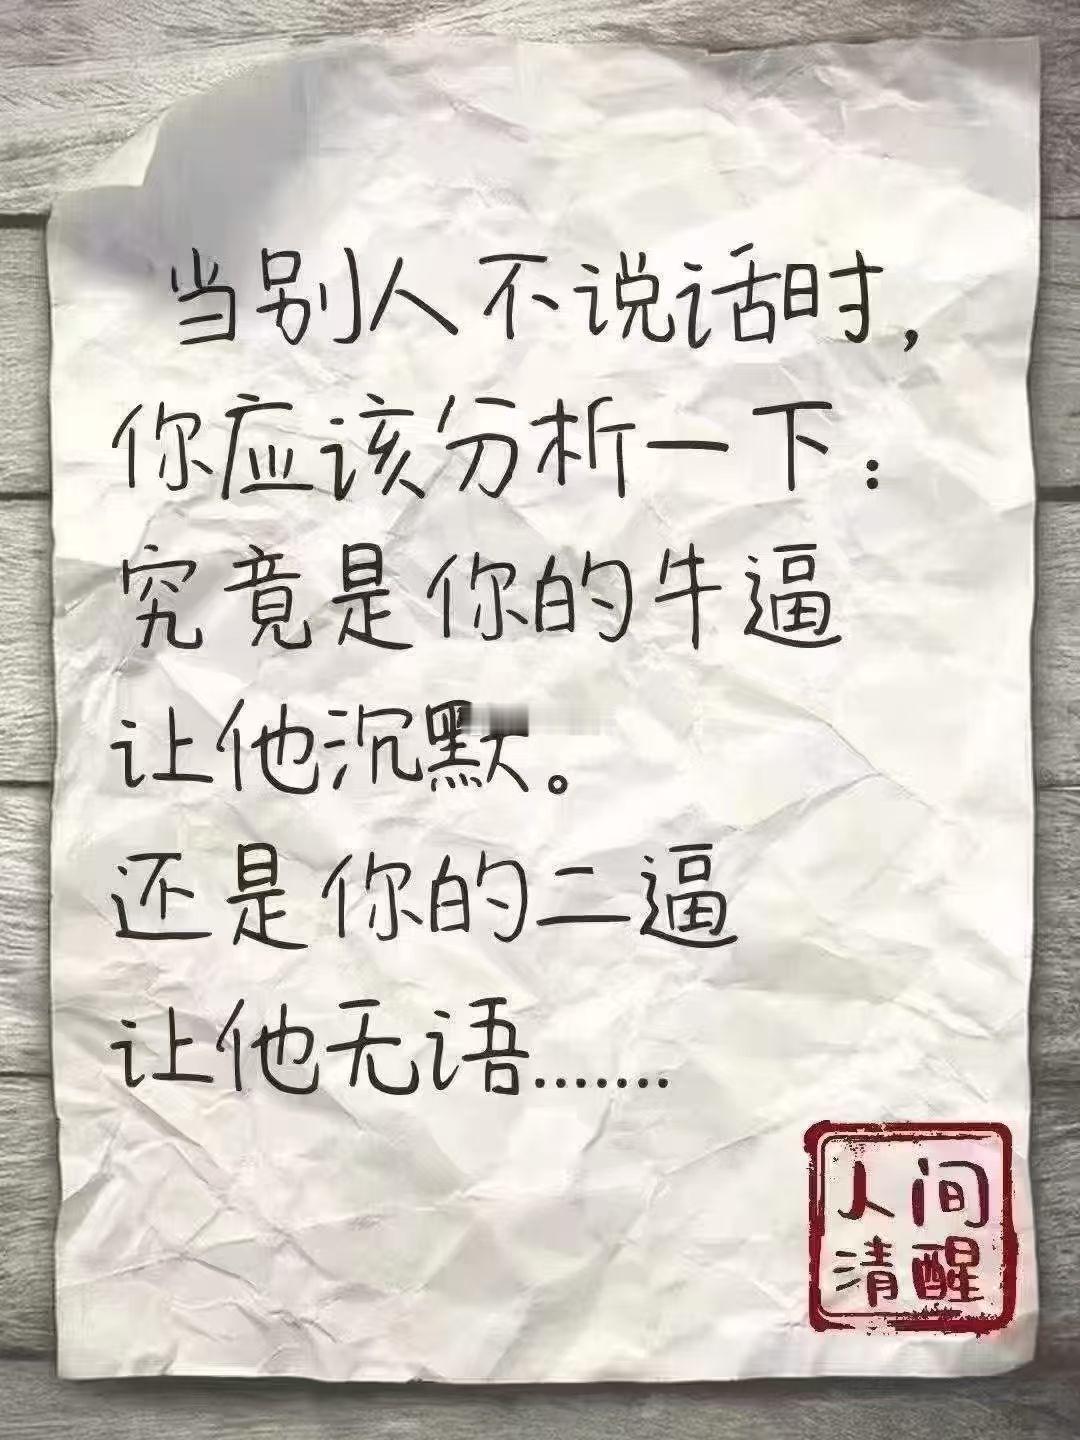 当别人不说话时，
你应该分析一下：
究竟是你的牛逼
让他沉默。
还是你的二逼
让他无语.......
人间
清醒